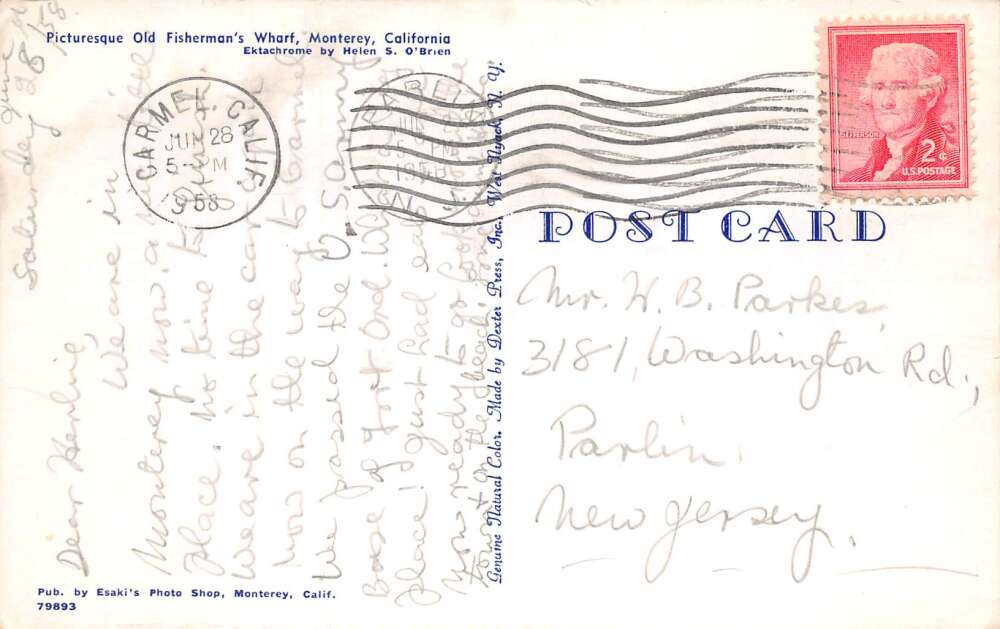 Picturesque Old Fisherman's Wharf, Monterey, California
Ektachrome by Helen S. O'Brien
Saturday June 28/58
Dear Herbie,
We are in
Monterey now. a
place. no time to
We are in the car
now on the way to Carmel
We passed the U.S. army
Base of Fort Ord.
place! just had
now ready to go
town & on the beach.
Pub. by Esaki's Photo Shop, Monterey, Calif.
79893
Genuine Natural Color. Made by Dexter Press, Inc., West Nyack, N. Y.
CARMEL, CALIF.
JUN 28
5 - PM
1958
JEFFERSON
2¢
U.S. POSTAGE
POST CARD
Mr. H. B. Parkes,
3181, Washington Rd.,
Parlin.
New Jersey.